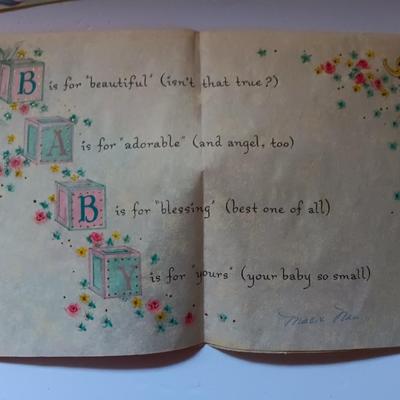 B is for "beautiful" (isn't that true?)
A is for "adorable" (and angel, too)
B is for "blessing" (best one of all)
Y is for "yours" (your baby so small)